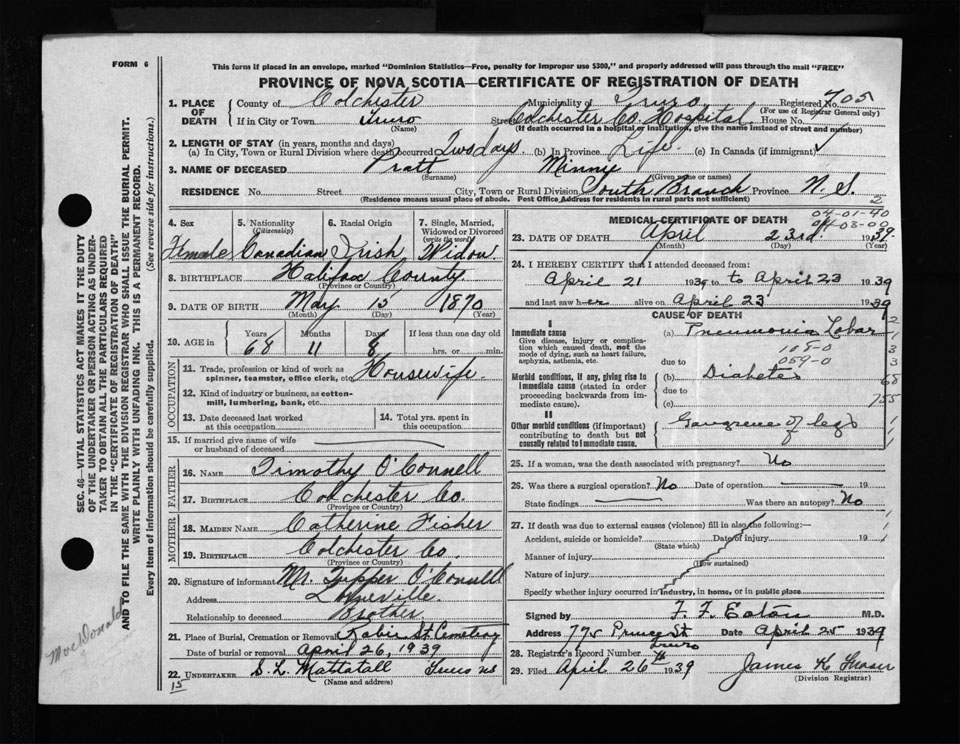 FORM 6
This form if placed in an envelope, marked "Dominion Statistics—Free, penalty for improper use $300," and properly addressed will pass through the mail "FREE"
PROVINCE OF NOVA SCOTIA—CERTIFICATE OF REGISTRATION OF DEATH
1. PLACE OF DEATH
County of Colchester Municipality of Truro Registered No. 705
(For use of Registrar General only)
If in City or Town Truro Street Colchester Co. Hospital House No.
(Name) (If death occurred in a hospital or institution, give the name instead of street and number)
2. LENGTH OF STAY (in years, months and days)
(a) In City, Town or Rural Division where death occurred Two days (b) In Province Life (c) In Canada (if immigrant) ✓
3. NAME OF DECEASED Pratt Minny
(Surname) (Given name or names)
RESIDENCE No. Street City, Town or Rural Division South Branch Province N. S.
(Residence means usual place of abode. Post Office Address for residents in rural parts not sufficient)
4. Sex 5. Nationality (Citizenship) 6. Racial Origin 7. Single, Married, Widowed or Divorced (write the word)
Female Canadian Irish Widow
8. BIRTHPLACE Halifax County
(Province or Country)
9. DATE OF BIRTH May 15 1870
(Month) (Day) (Year)
10. AGE in Years Months Days If less than one day old
68 11 8 hrs. or min.
OCCUPATION
11. Trade, profession or kind of work as spinner, teamster, office clerk, etc. Housewife
12. Kind of industry or business, as cotton-mill, lumbering, bank, etc.
13. Date deceased last worked at this occupation 14. Total yrs. spent in this occupation
15. If married give name of wife or husband of deceased
FATHER
16. NAME Timothy O'Connell
17. BIRTHPLACE Colchester Co.
(Province or Country)
MOTHER
18. MAIDEN NAME Catherine Fisher
19. BIRTHPLACE Colchester Co.
(Province or Country)
20. Signature of informant Mr. Tupper O'Connell
Address Lorneville
Relationship to deceased Brother
21. Place of Burial, Cremation or Removal Robie St. Cemetery
Date of burial or removal April 26, 1939
22. UNDERTAKER S. L. Mattatall Truro NS
(Name and address)
15
MEDICAL CERTIFICATE OF DEATH
2
04-01-40
04-03-00
23. DATE OF DEATH April 23rd 1939
(Month) (Day) (Year)
24. I HEREBY CERTIFY that I attended deceased from:
April 21 1939 to April 23 1939
and last saw her alive on April 23 1939
CAUSE OF DEATH
I
Immediate cause (a) Pneumonia Lobar
Give disease, injury or complication which caused death, not the mode of dying, such as heart failure, asphyxia, asthenia, etc.
108-0
due to 059-0
Morbid conditions, if any, giving rise to immediate cause (stated in order proceeding backwards from immediate cause).
(b) Diabetes
due to
(c)
II
Other morbid conditions (if important) contributing to death but not causally related to immediate cause.
Gangrene of legs
2
1
3
3
68
755
1
1
1
25. If a woman, was the death associated with pregnancy? No
26. Was there a surgical operation? No Date of operation 19
State findings Was there an autopsy? No
27. If death was due to external causes (violence) fill in also the following:—
Accident, suicide or homicide? Date of injury 19
(State which)
Manner of injury
(How sustained)
Nature of injury
Specify whether injury occurred in industry, in home, or in public place
Signed by F. F. Eaton M.D.
Address 775 Prince St Date April 25 1939
Truro
28. Registrar's Record Number
29. Filed April 26th 1939 James K Fraser
(Division Registrar)
SEC. 46—VITAL STATISTICS ACT MAKES IT THE DUTY
OF THE UNDERTAKER OR PERSON ACTING AS UNDER-
TAKER TO OBTAIN ALL THE PARTICULARS REQUIRED
IN THE "CERTIFICATE OF REGISTRATION OF DEATH"
AND TO FILE THE SAME WITH THE DIVISION REGISTRAR WHO SHALL ISSUE THE BURIAL PERMIT.
WRITE PLAINLY WITH UNFADING INK. THIS IS A PERMANENT RECORD.
Every item of information should be carefully supplied. (See reverse side for instructions.)
MacDonald